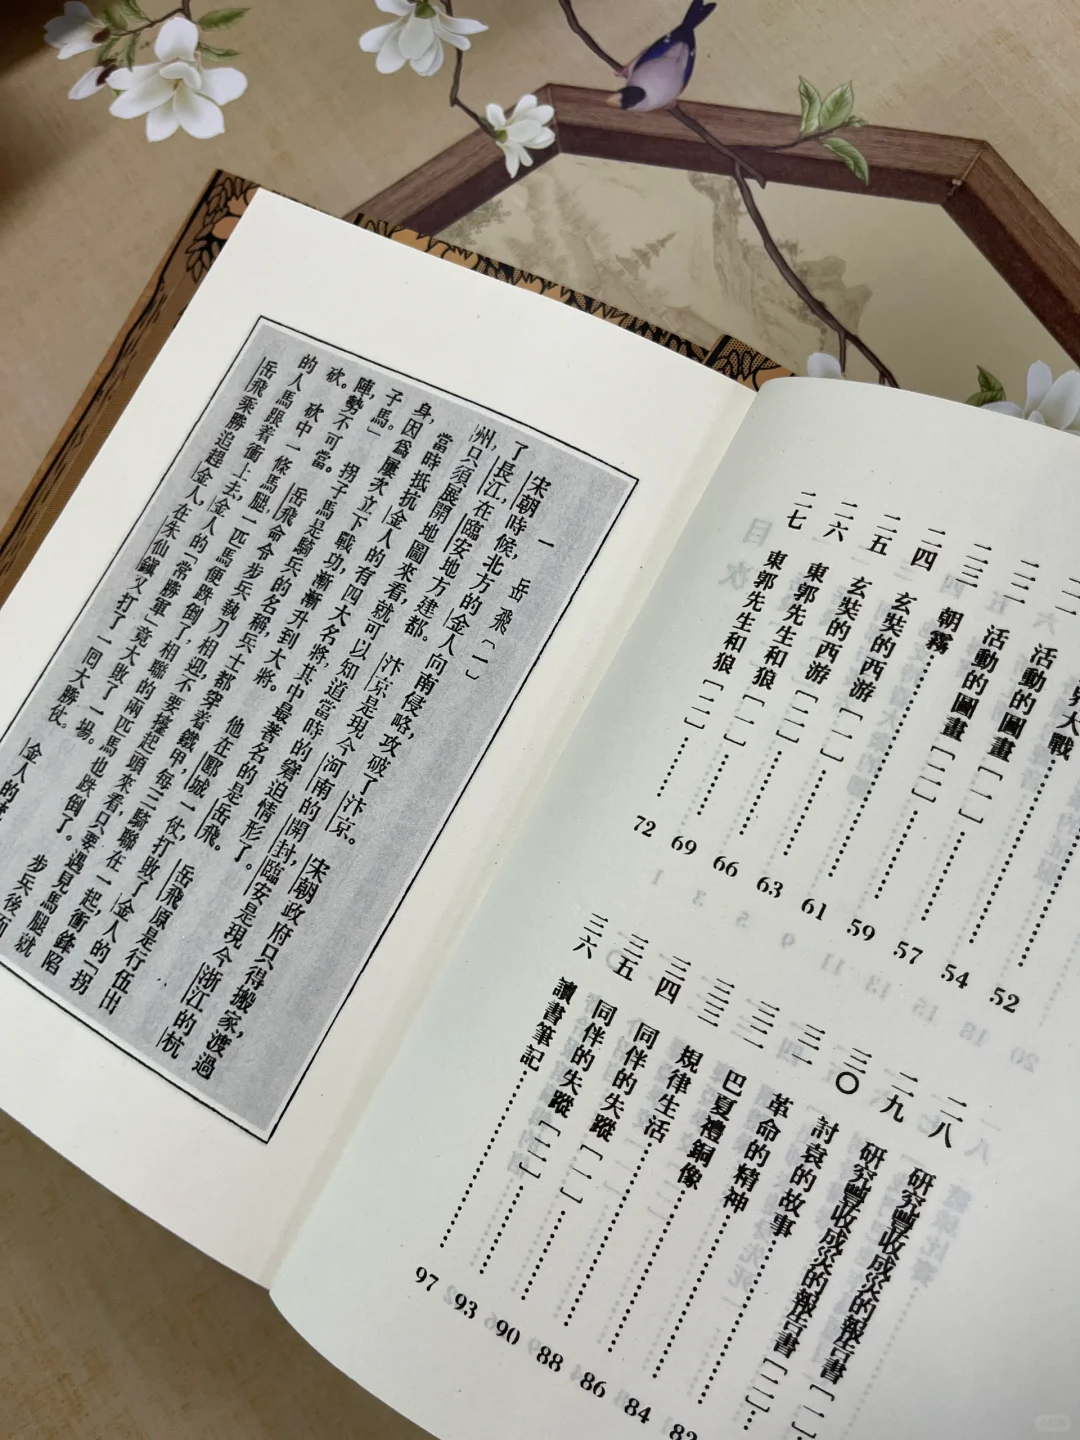 界大戰 54
活動的圖畫〔一〕 57
二二 活動的圖畫〔二〕 59
二三 朝霧 61
二四 玄奘的西游〔一〕 63
二五 玄奘的西游〔二〕 66
二六 東郭先生和狼〔一〕 69
二七 東郭先生和狼〔二〕 72
52
二八 研究豐收成災的報告書〔一〕
二九 研究豐收成災的報告書〔二〕
三〇 討袁的故事
三一 革命的精神 84
三二 巴夏禮銅像 86
三三 規律生活 88
三四 同伴的失蹤〔一〕 90
三五 同伴的失蹤〔二〕 93
三六 讀書筆記 97
一 岳飛〔一〕
宋朝時候，北方的金人向南侵略，攻破了汴京。宋朝政府只得搬家，渡過
了長江，在臨安地方建都。汴京是現今河南的開封，臨安是現今浙江的杭
州，只須展開地圖來看，就可以知道當時的窘迫情形了。
當時抵抗金人的有四大名將，其中最著名的是岳飛。岳飛原是行伍出
身，因爲屢次立下戰功，漸漸升到大將。他在郾城一仗，打敗了金人的「拐
子馬。」拐子馬是騎兵的名稱，兵士都穿着鐵甲，每三騎聯在一起，衝鋒陷
陣，勢不可當。岳飛命令步兵執刀相迎，不要擡起頭來看，只要遇見馬腿就
砍。砍中一條馬腿，一匹馬便跌倒了，相聯的兩匹馬也跌倒了。步兵後面
的人馬跟着衝上去，金人的「常勝軍」竟大敗了一場。
岳飛乘勝追趕金人，在朱仙鎮又打了一回大勝仗。金人的